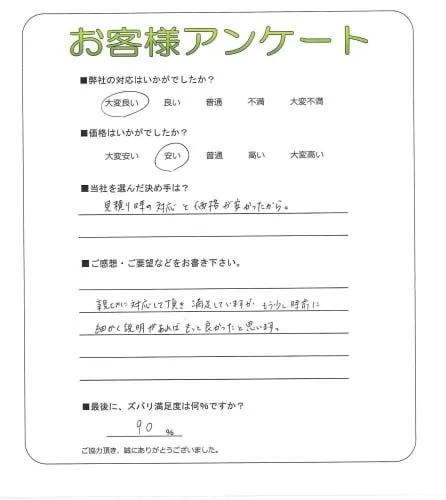 お客様アンケート
■弊社の対応はいかがでしたか?
大変良い 良い 普通 不満 大変不満
■価格はいかがでしたか?
大変安い 安い 普通 高い 大変高い
■当社を選んだ決め手は?
見積り時の対応と価格が安かったから。
■ご感想・ご要望などをお書き下さい。
親切に対応して頂き満足していますが、もう少し時前に
細かく説明があればもっと良かったと思います。
■最後に、ズバリ満足度は何%ですか?
90 %
ご協力頂き、誠にありがとうございました。